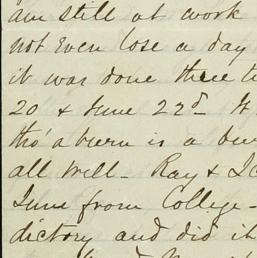 am still at work
not even lose a day
it was done three t
20 & June 22d
tho' a burn is a
all well - Ray &
June from College -
dictory and did it